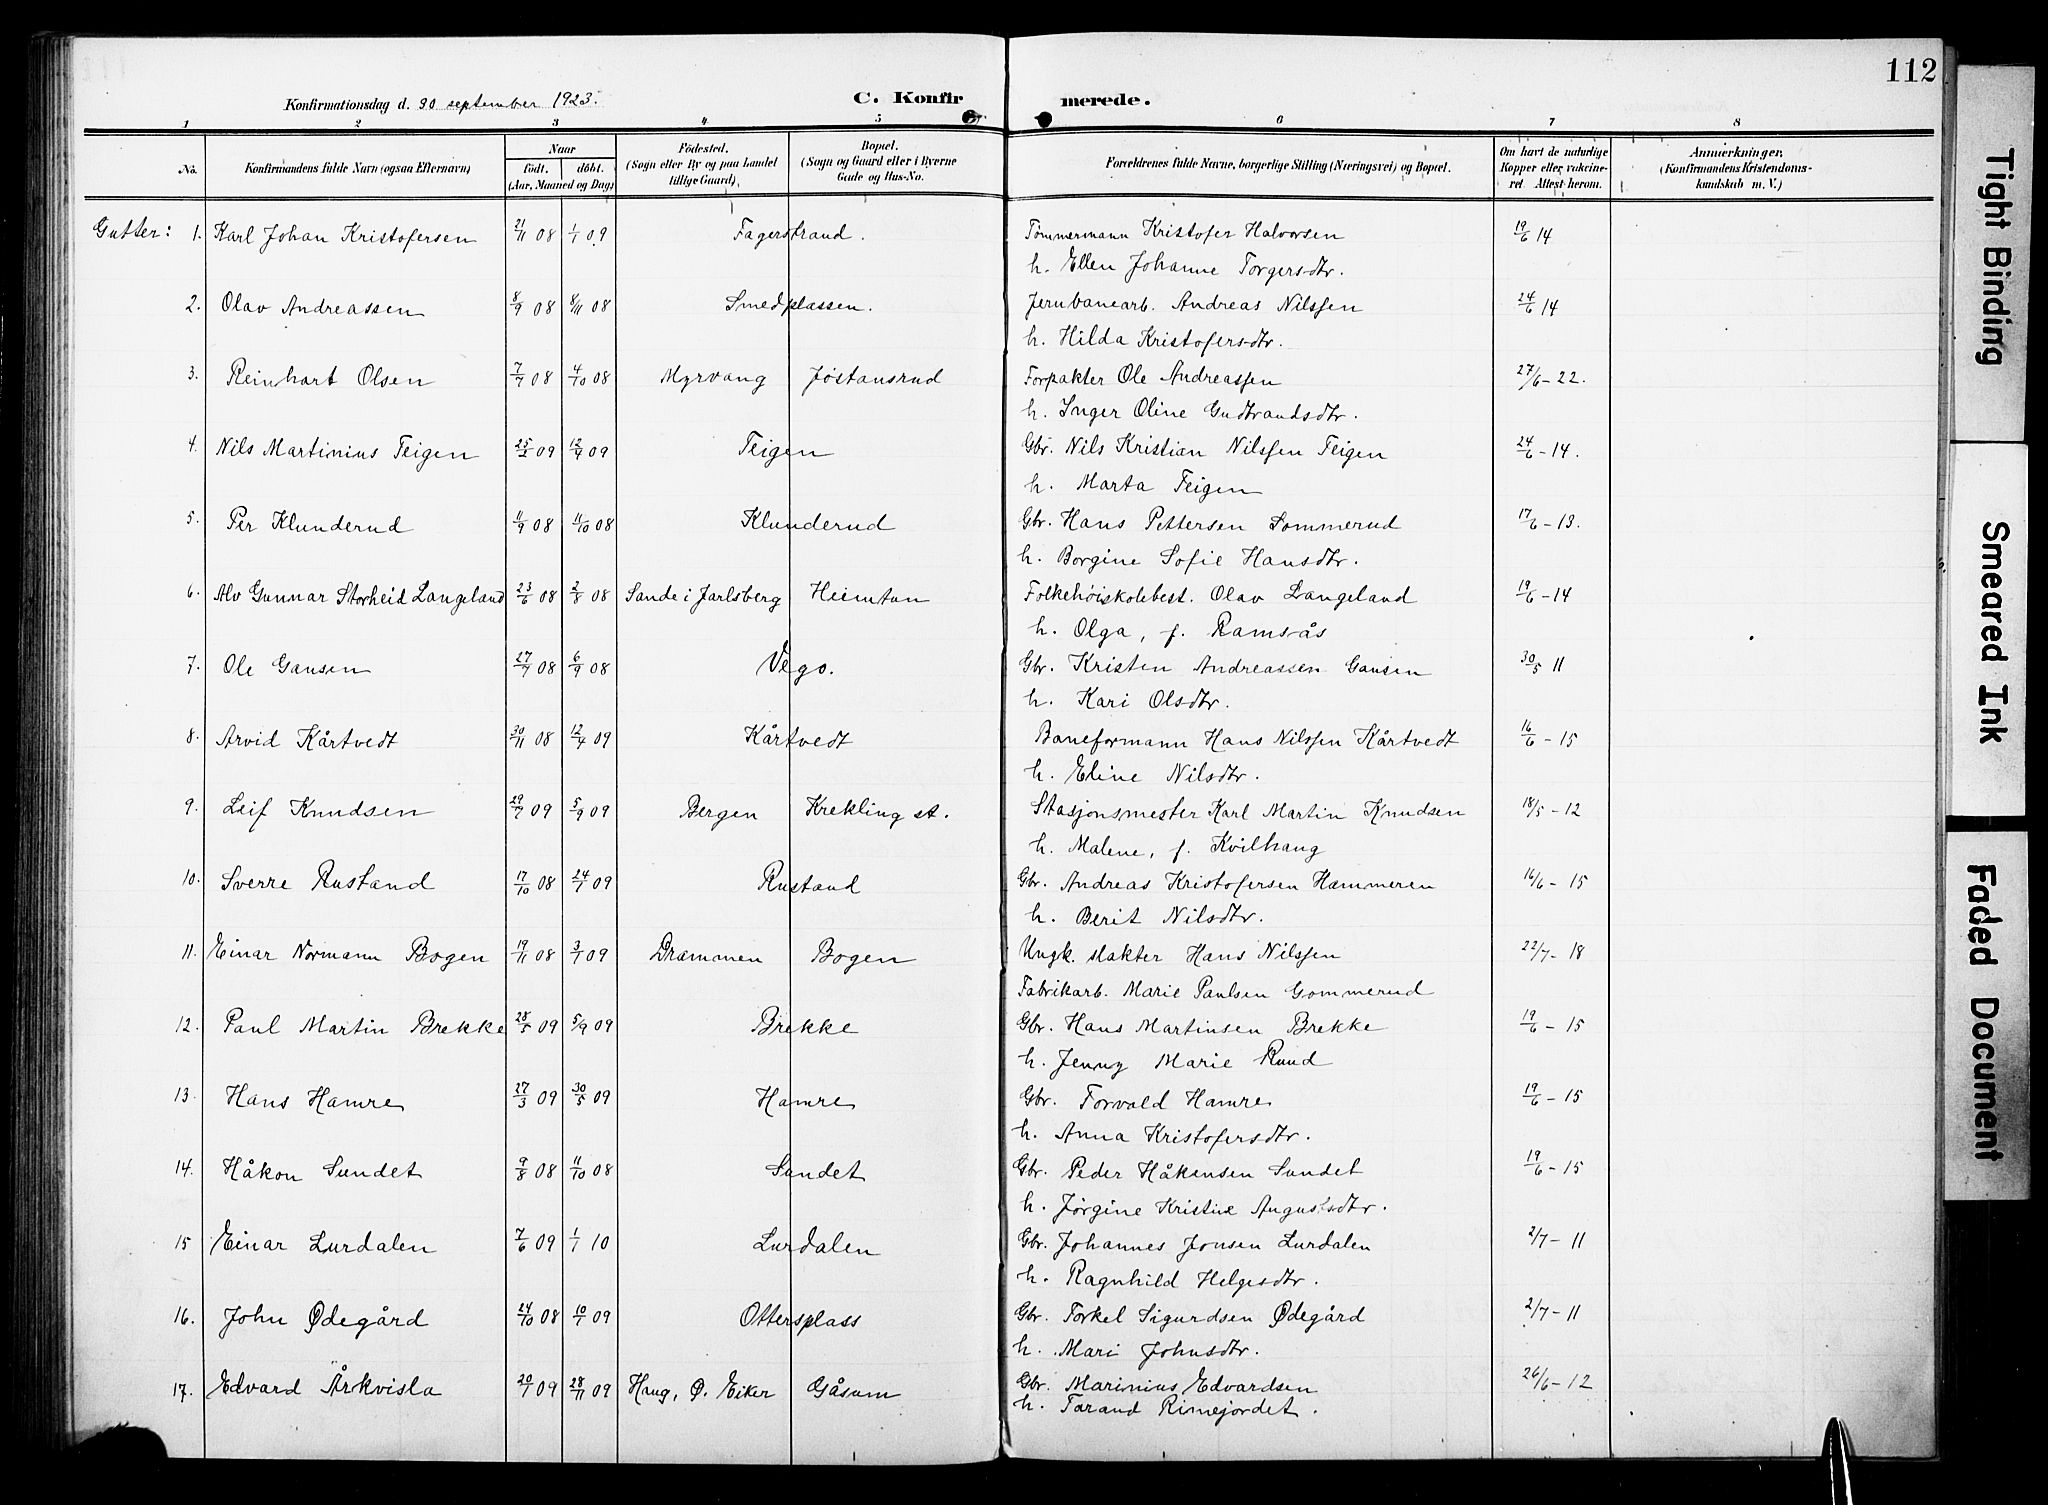 112
Konfirmationsdag d. 30 september 1923.
C. Konfirmerede.
1 2 3 4 5 6 7 8
No.
Konfirmandens fulde Navn (ogsaa Efternavn)
Naar
født. døbt.
(Aar, Maaned og Dag)
Fødested.
(Sogn eller By og paa Landet
tillige Gaard).
Bopæl.
(Sogn og Gaard eller i Byerne
Gade og Hus-No.
Forældrenes fulde Navne, borgerlige Stilling (Næringsvei) og Bopæl.
Om havt de naturlige
Kopper eller vaccine-
ret. Attest herom.
Anmærkninger.
(Konfirmandens Kristendoms-
kundskab m. V.)
Gutter: 1. Karl Johan Kristofersen 21/11 08 1/1 09 Fagerstrand. Tømmermann Kristofer Halvorsen 19/6 14
h. Ellen Johanne Torgersdtr.
2. Olav Andreassen 8/9 08 8/11 08 Smedplassen. Jernbanearb. Andreas Nilssen 24/6 14
h. Hilda Kristofersdtr.
3. Reinhart Olsen 7/7 08 4/10 08 Myrvang Jøstansrud Forpakter Ole Andreassen 27/6-22.
h. Inger Oline Gudbrandsdtr.
4. Nils Martinius Teigen 25/2 09 12/4 09 Teigen Gbr. Nils Kristian Nilssen Teigen 24/6-14.
h. Marta Teigen
5. Per Klunderud 11/9 08 11/10 08 Klunderud Gbr. Hans Pettersen Sommerud 17/6-13.
h. Borgine Sofie Hansdtr.
6. Alv Gunnar Storheid Langeland 23/6 08 2/8 08 Sande i Jarlsberg Heimtun Folkehøiskolebest. Olav Langeland 19/6-14
h. Olga, f. Ramsås
7. Ole Gausen 27/7 08 6/9 08 Vego. Gbr. Kristen Andreassen Gausen 30/5 11
h. Kari Olsdtr.
8. Arvid Kårtvedt 30/11 08 12/4 09 Kårtvedt Baneformann Hans Nilssen Kårtvedt 16/6-15
h. Eline Nilsdtr.
9. Leif Knudsen 29/7 09 5/9 09 Bergen Krekling st. Stasjonsmester Karl Martin Knudsen 18/5-12
h. Malene, f. Kvilhaug
10. Sverre Rustand 17/10 08 24/1 09 Rustand Gbr. Andreas Kristofersen Hammeren 16/6-15
h. Berit Nilsdtr.
11. Einar Normann Bogen 19/11 08 3/1 09 Drammen Bogen Ungk. slakter Hans Nilssen 22/7-18
Fabrikarb. Marie Paulsen Gommerud
12. Paul Martin Brekke 28/5 09 5/9 09 Brekke Gbr. Hans Martinsen Brekke 19/6-15
h. Jenny Marie Ruud
13. Hans Hamre 27/3 09 30/5 09 Hamre Gbr. Torvald Hamre 19/6-15
h. Anna Kristofersdtr.
14. Håkon Sundet 9/8 08 11/10 08 Sundet Gbr. Peder Håkensen Sundet 19/6-15
h. Jørgine Kristine Augustsdtr.
15 Einar Lurdalen 7/6 09 1/1 10 Lurdalen Gbr. Johannes Jonsen Lurdalen 2/7-11
h. Ragnhild Helgesdtr.
16. John Ødegård 24/10 08 10/1 09 Ottersplass Gbr. Torkel Sigurdsen Ødegård 2/7-11
h. Mari Johnsdtr.
17. Edvard Årkvisla 20/1 09 28/11 09 Haug, Ø. Eiker Gåsum Gbr. Marinius Edvardsen 26/6-12
h. Tarand Rimejordet.
Tight Binding
Smeared Ink
Faded Document